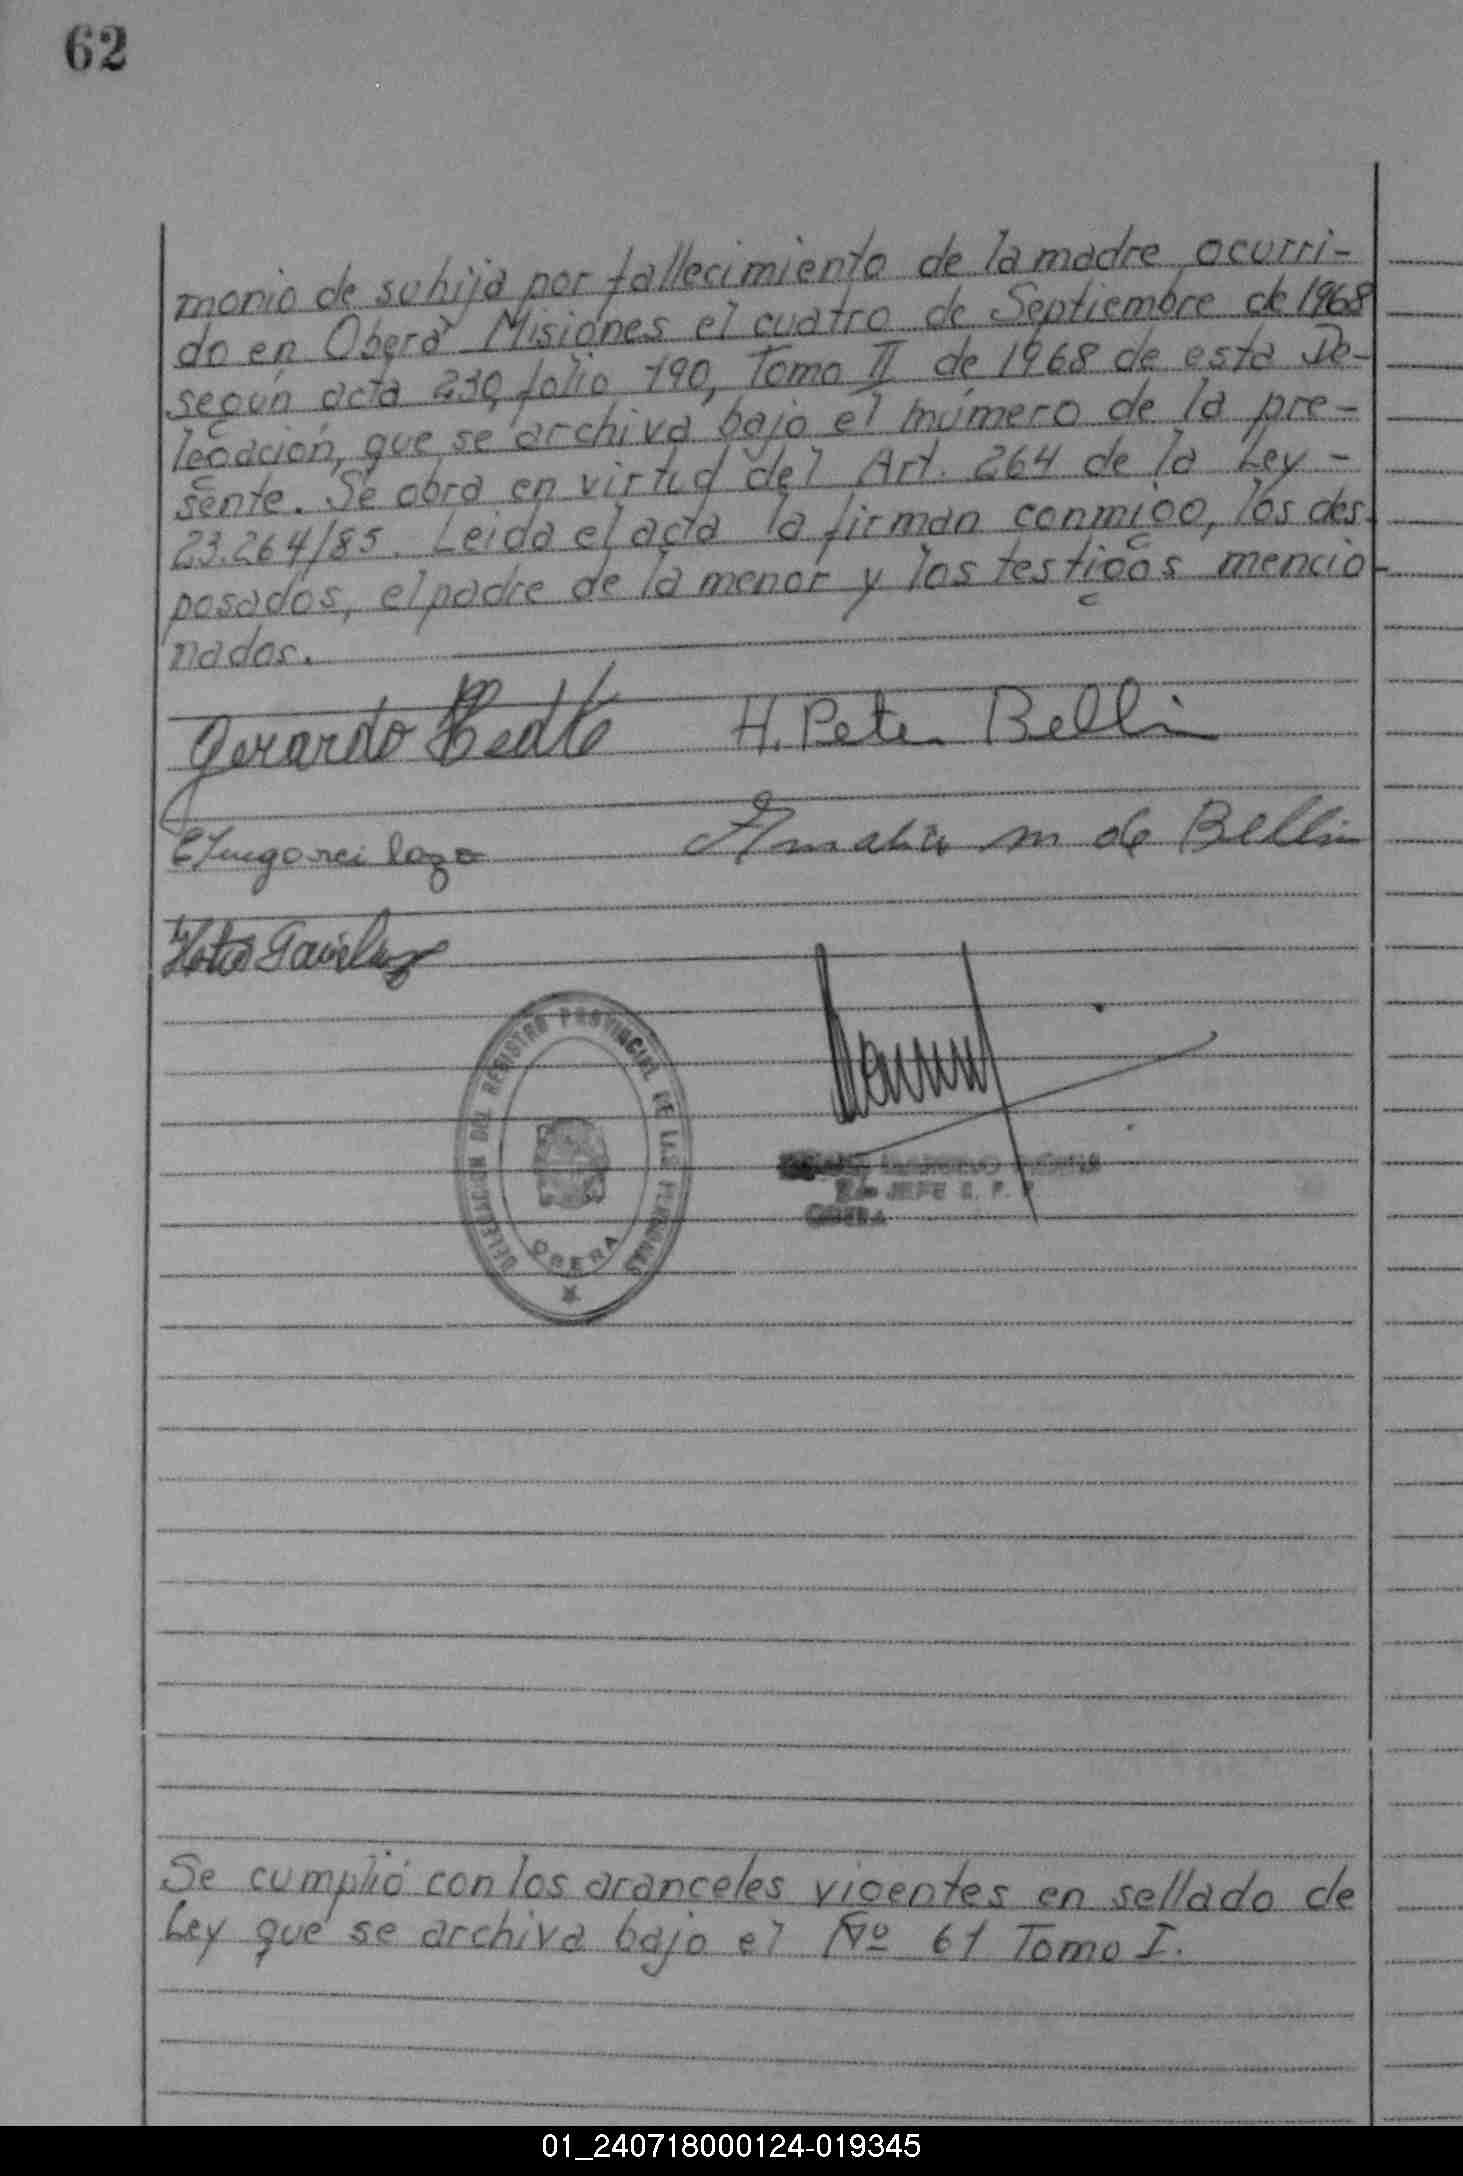 62
monio de su hija por fallecimiento de la madre ocurri-
do en Oberá Misiones el cuatro de Septiembre de 1968
según acta 230, folio 190, Tomo II de 1968 de esta De-
legación, que se archiva bajo el número de la pre-
sente. Se obra en virtud del Art. 264 de la Ley -
23.264/85. Leida el acta la firman conmigo, los des-
posados, el padre de la menor y los testigos mencio-
nados.
Gerardo
H. Peter Bellin
Amalia m de Bellin
DELEGACION DEL REGISTRO PROVINCIAL DE LAS PERSONAS
OBERA
JEFE
OBERA
Se cumplió con los aranceles vigentes en sellado de
Ley que se archiva bajo el Nº 61 Tomo I.
01_240718000124-019345